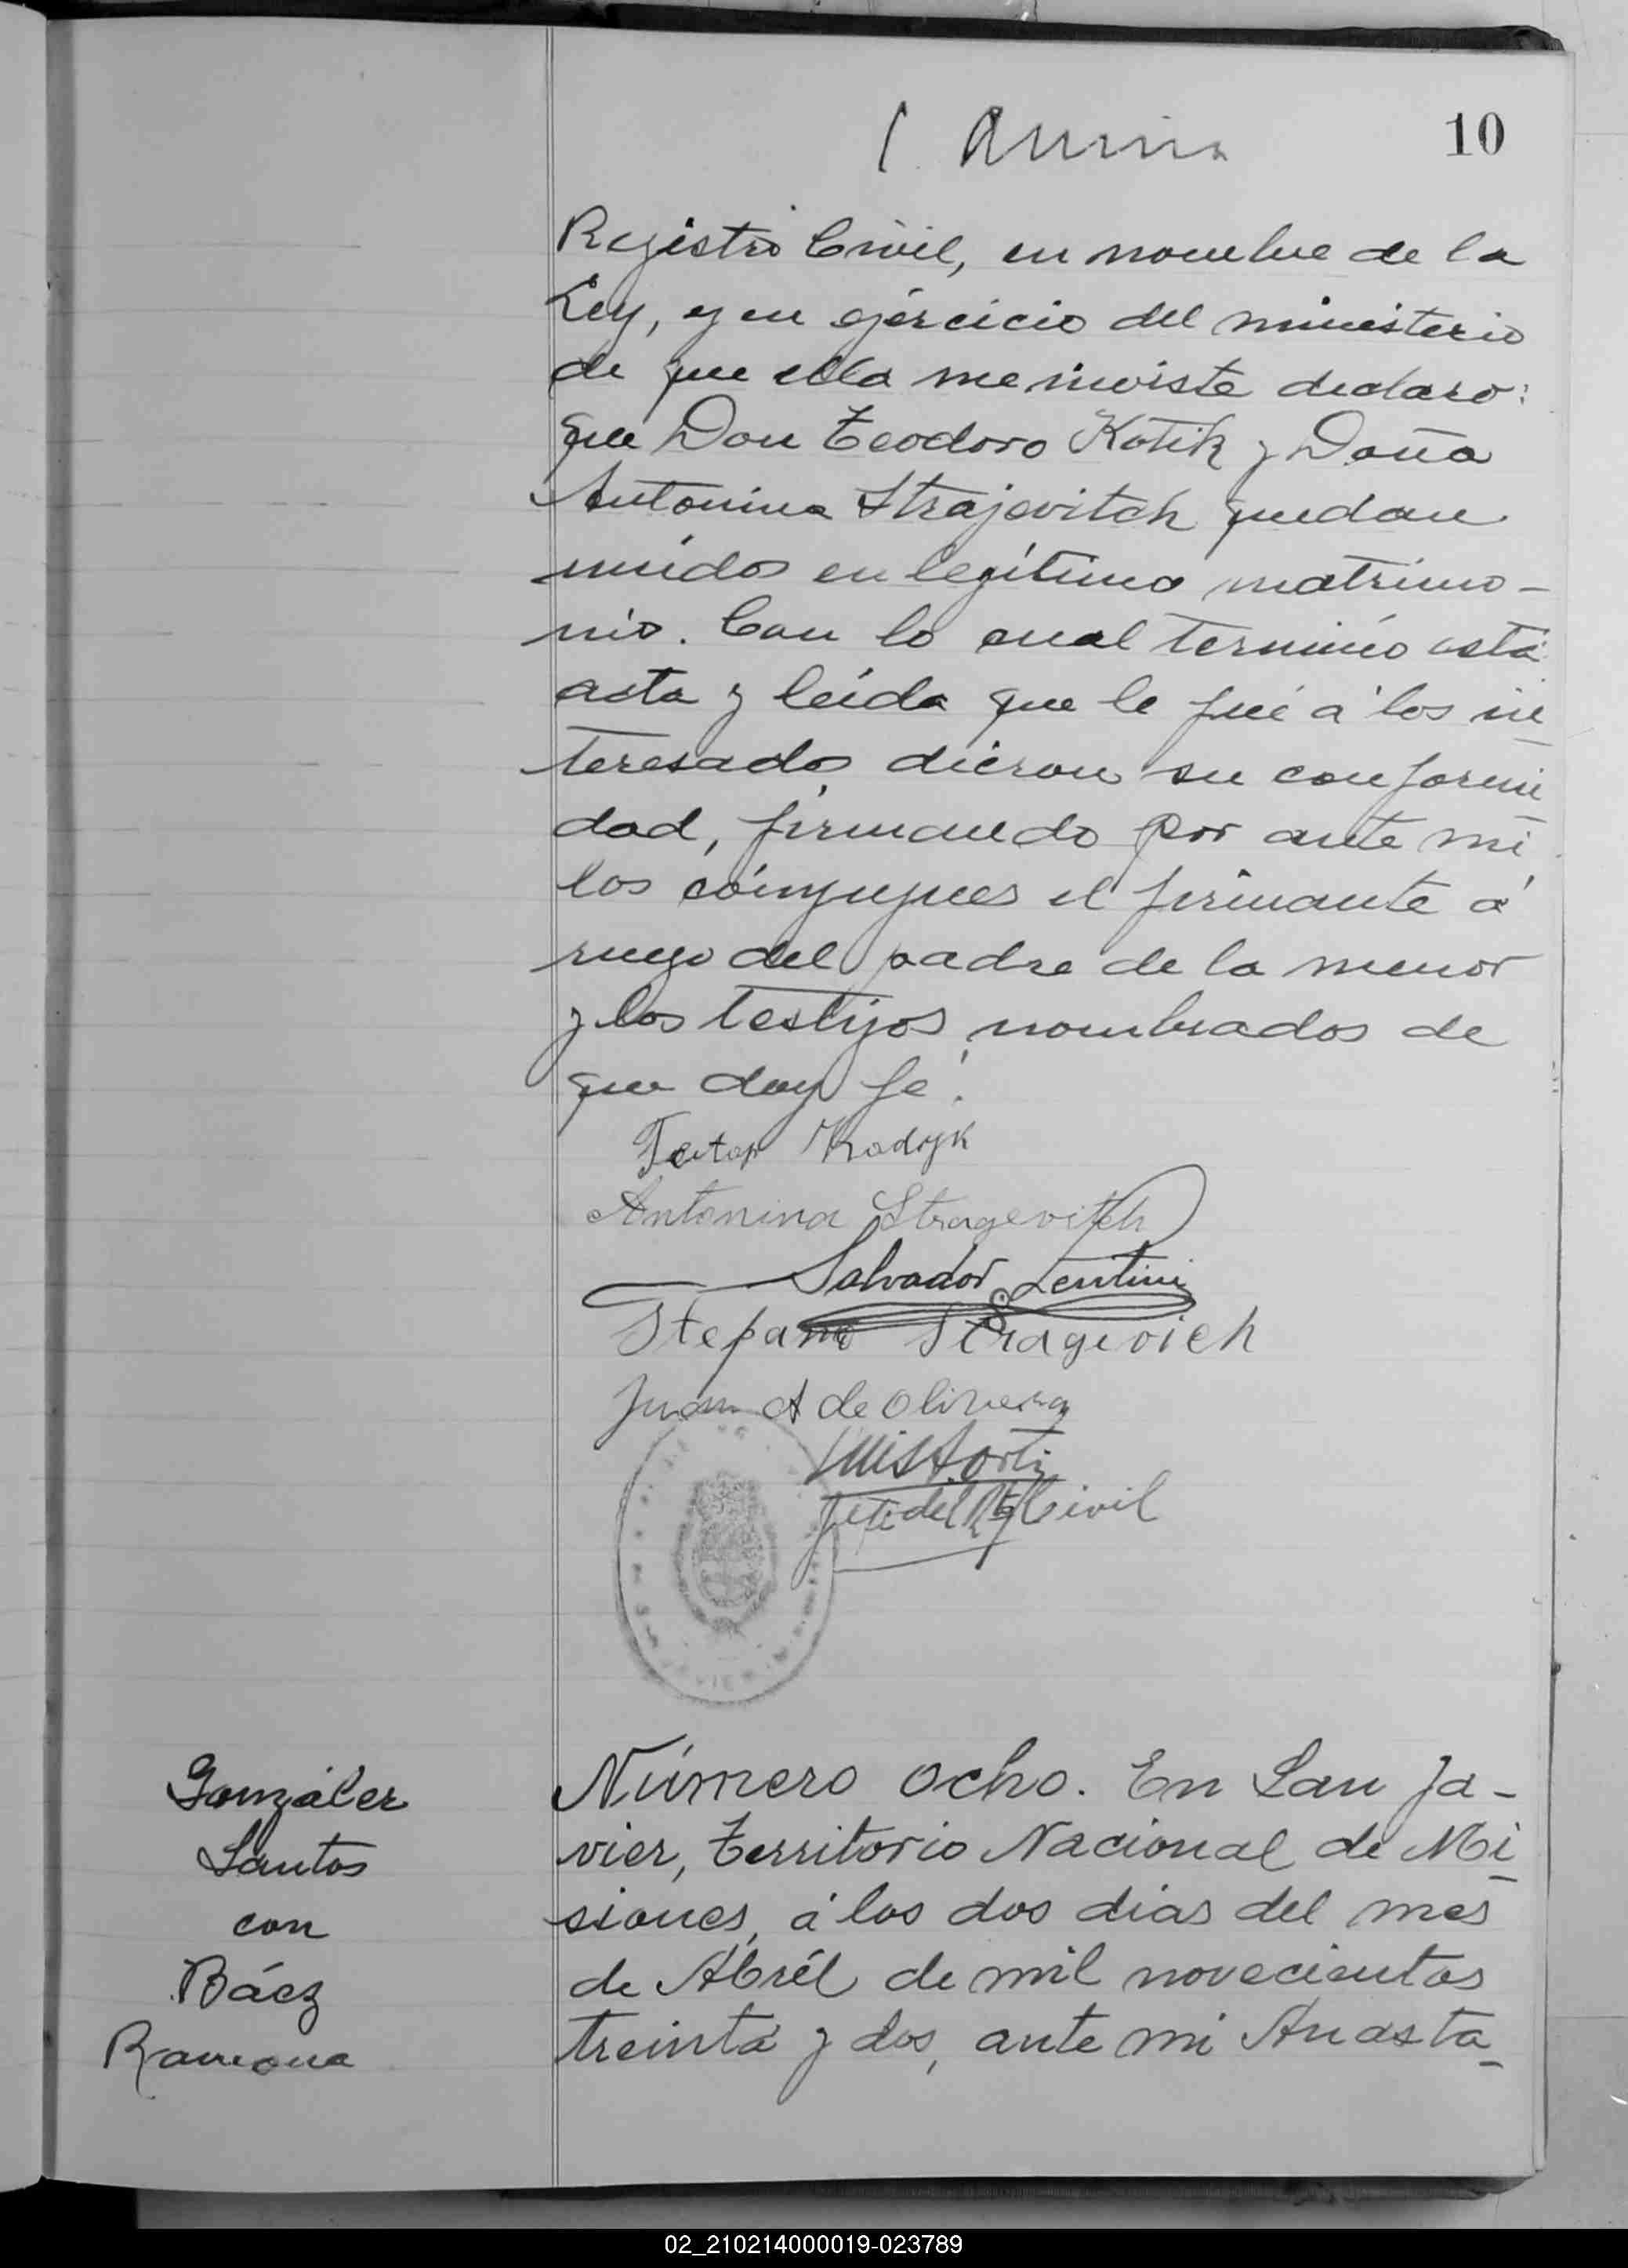 10
Registro Civil, en nombre de la
Ley, y en ejércicio del ministerio
de que ella me inviste declaro:
que Don Teodoro Kotik y Doña
Antonina Strajevitch quedan
unidos en legítimo matrimo-
nio. Con lo cual terminó esta
acta y leída que le fué á los in-
teresados, dieron su conformi-
dad, firmando por ante mí
los cónyugues el firmante á
ruego del padre de la menor
y los testijos nombrados de
que doy fe.
Kodyk
Antonina Stragevitch
Salvador Lentini
Stefano Stragevich
Juan A de Olivera
Luis A.
Jefe del Reg Civil
Gonzáler
Santos
con
Báez
Ramona
Número ocho. En San Ja-
vier, Territorio Nacional de Mi-
siones, á los dos dias del mes
de Abrél de mil novecientos
treinta y dos, ante mi Anasta-
02_210214000019-023789